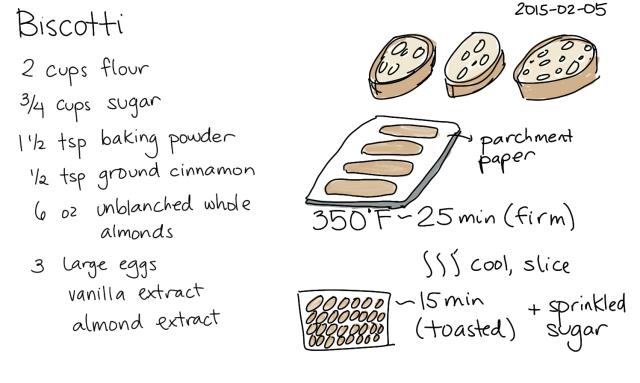 Biscotti
2015-02-05
2 cups flour
3/4 cups sugar
1 1/2 tsp baking powder
1/2 tsp ground cinnamon
6 oz unblanched whole
almonds
3 large eggs
vanilla extract
almond extract
parchment
paper
350°F ~ 25 min (firm)
cool, slice
~15 min
(toasted)
+ sprinkled
sugar